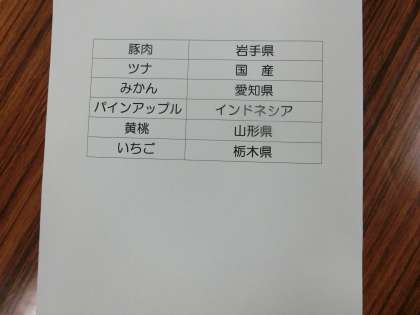 豚肉 岩手県
ツナ 国 産
みかん 愛知県
パインアップル インドネシア
黄桃 山形県
いちご 栃木県